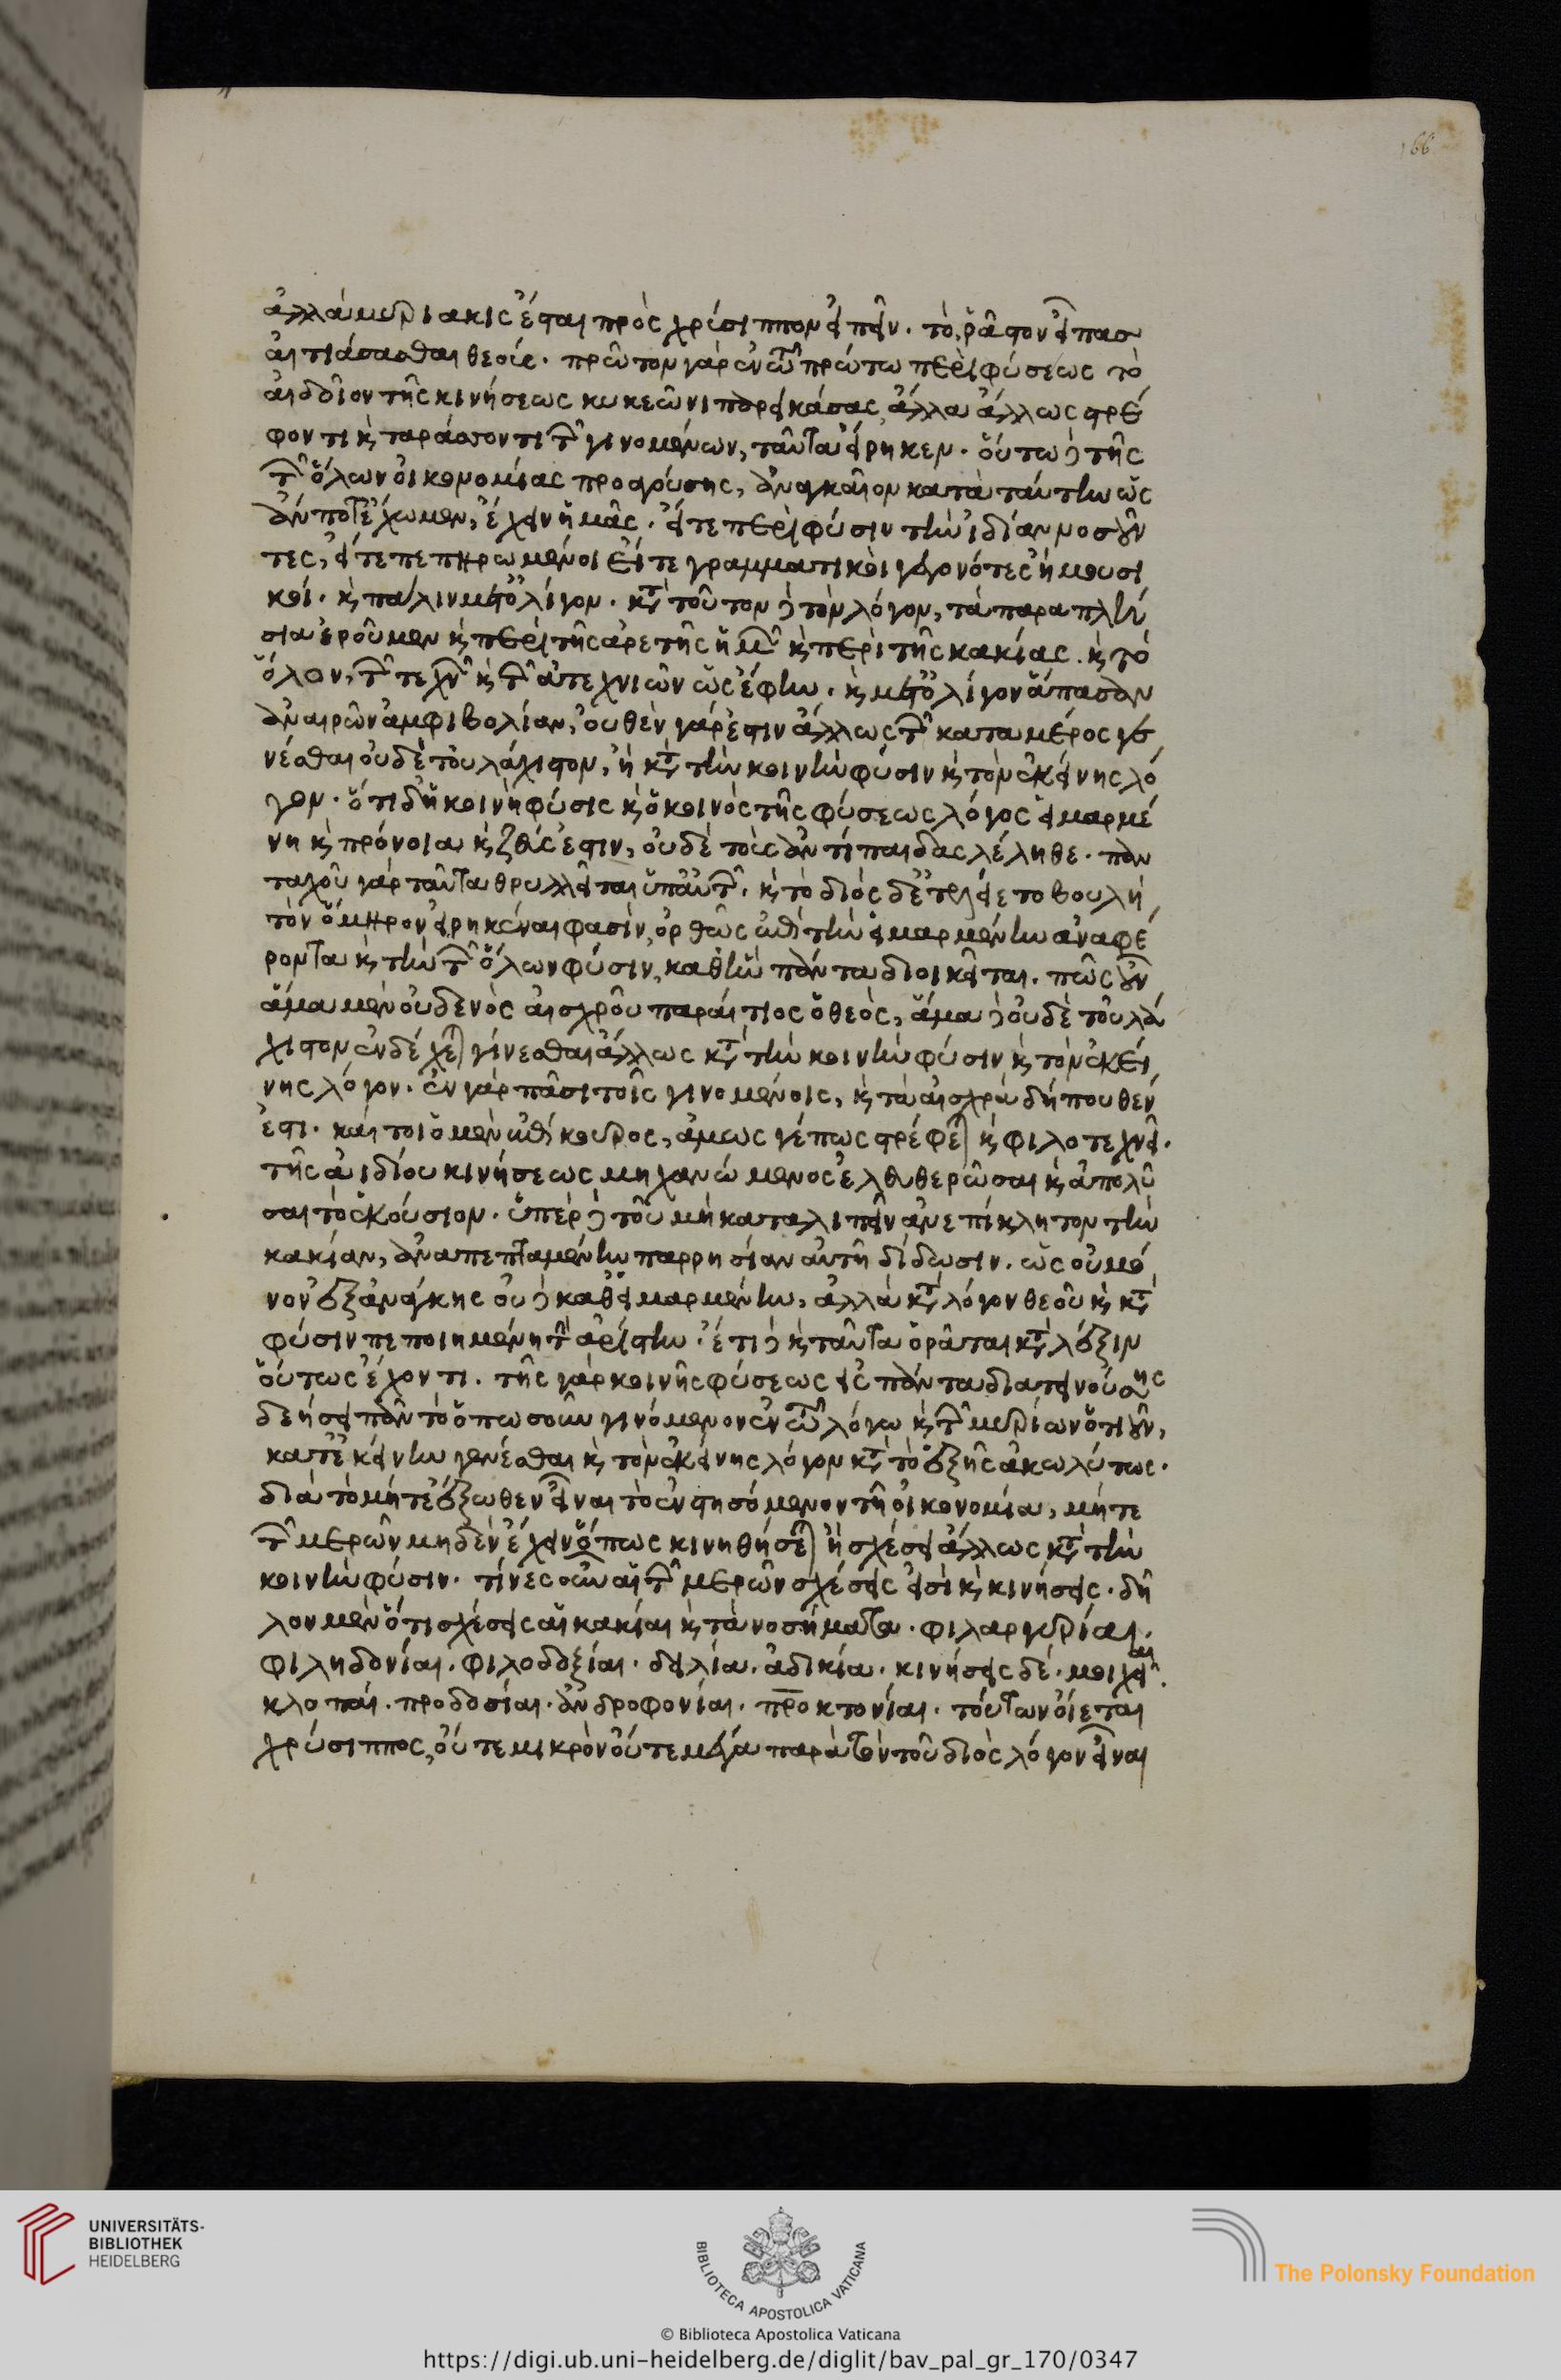 166
ἀλλὰ μυριάκις ἔσται πρὸς χρύσιππον εἰπεῖν. τὸ ῥᾷστον εἶπας
αἰτιάσασθαι θεούς. πρῶτον γὰρ ἐν τῷ πρώτω περὶ φύσεως τὸ
ἀίδιον τῆς κινήσεως κυκεῶνι παρεικάσας, ἄλλα ἄλλως στρέ
φοντι κ ταράσσοντι τῶν γινομένων, ταῦτα εἴρηκεν. οὕτω δὲ τῆς
τῶν ὅλων οἰκονομίας προαγούσης, ἀναγκαῖον κατὰ ταύτην ὡς
ἄν ποτ' ἔχωμεν, ἔχειν ἡμᾶς. εἴτε περὶ φύσιν τὴν ἰδίαν νοσοῦν
τες, εἴτε πεπηρωμένοι εἴτε γραμματικοὶ γεγονότες ἢ μουσι
κοί. κ πάλιν μετ' ὀλίγον. κατὰ τοῦτον δὲ τὸν λόγον, τὰ παραπλή
σια ἐροῦμεν κ περὶ τῆς ἀρετῆς ἡμῶν κ περὶ τῆς κακίας. κ τὸ
ὅλον, τῶν τεχνῶν κ τῶν ἀτεχνιῶν ὡς ἔφην. κ μετ' ὀλίγον ἅπασαν
ἀναιρῶν ἀμφιβολίαν, οὐθὲν γάρ ἐστιν ἄλλως τῶν κατὰ μέρος γε
νέσθαι οὐδὲ τοὐλάχιστον, ἢ κατὰ τὴν κοινὴν φύσιν κ τὸν ἐκείνης λό
γον. ὅτι δ' ἡ κοινὴ φύσις κ ὁ κοινὸς τῆς φύσεως λόγος εἱμαρμέ
νη κ πρόνοια κ ζεύς ἐστιν, οὐδὲ τοὺς ἀντίποδας λέληθε. παν
ταχοῦ γὰρ ταῦτα θρυλλεῖται ὑπ' αὐτῶν. κ τὸ διὸς δ' ἐτελείετο βουλὴ
τὸν ὅμηρον εἰρηκέναι φασίν, ὀρθῶς ἐπὶ τὴν εἱμαρμένην ἀναφέ
ροντα κ τὴν τῶν ὅλων φύσιν, καθ' ἣν πάντα διοικεῖται. πῶς οὖν
ἅμα μὲν οὐδενὸς αἰσχροῦ παραίτιος ὁ θεὸς, ἅμα δὲ οὐδὲ τοὐλά
χιστον ἐνδέχεται γίνεσθαι ἄλλως κατὰ τὴν κοινὴν φύσιν κ τὸν ἐκεί
νης λόγον. ἐν γὰρ πᾶσι τοῖς γινομένοις, κ τὰ αἰσχρὰ δήπουθέν
ἐστι. καίτοι ὁ μὲν ἐπίκουρος, ἀμῶς γέ πως στρέφεται κ φιλοτεχνεῖ.
τῆς ἀιδίου κινήσεως μηχανώμενος ἐλευθερῶσαι κ ἀπολῦ
σαι τὸ ἑκούσιον. ὑπὲρ δὲ τοῦ μὴ καταλιπεῖν ἀνεπίκλητον τὴν
κακίαν, ἀναπεπταμένην παρρησίαν αὐτῇ δίδωσιν. ὡς οὐ μό
νον ἐξ ἀνάγκης οὐδὲ καθ' εἱμαρμένην, ἀλλὰ κατὰ λόγον θεοῦ κ κατὰ
φύσιν πεποιημένη τὴν ἀρίστην. ἔτι δὲ κ ταῦτα ὁρᾶται κατὰ λέξιν
οὕτως ἔχοντι. τῆς γὰρ κοινῆς φύσεως εἰς πάντα διατεινούσης
δεήσει πᾶν τὸ ὁπωσοῦν γινόμενον ἐν τῷ λόγω κ τῶν μορίων ὁτιοῦν,
κατ' ἐκείνην γενέσθαι κ τὸν ἐκείνης λόγον κατὰ τὸ ἑξῆς ἀκωλύτως.
διὰ τὸ μήτ' ἔξωθεν εἶναι τὸ ἐνστησόμενον τῇ οἰκονομία, μήτε
τῶν μερῶν μηδὲν ἔχειν ὅπως κινηθήσεται ἢ σχέσει ἄλλως κατὰ τὴν
κοινὴν φύσιν. τίνες οὖν αἱ τῶν μερῶν σχέσεις εἰσὶ κ κινήσεις. δῆ
λον μὲν ὅτι σχέσεις αἱ κακίαι κ τὰ νοσήματα. φιλαργυρίαι.
φιληδονίαι. φιλοδοξίαι. δειλία. ἀδικία. κινήσεις δέ. μοιχεῖαι.
κλοπαί. προδοσίαι. ἀνδροφονίαι. πρ̅οκτονίαι. τούτων οἴεται
χρύσιππος, οὔτε μικρὸν οὔτε μέγα παρὰ τὸν τοῦ διὸς λόγον εἶναι
UNIVERSITÄTS-
BIBLIOTHEK
HEIDELBERG
BIBLIOTECA APOSTOLICA VATICANA
The Polonsky Foundation
© Biblioteca Apostolica Vaticana
https://digi.ub.uni-heidelberg.de/diglit/bav_pal_gr_170/0347